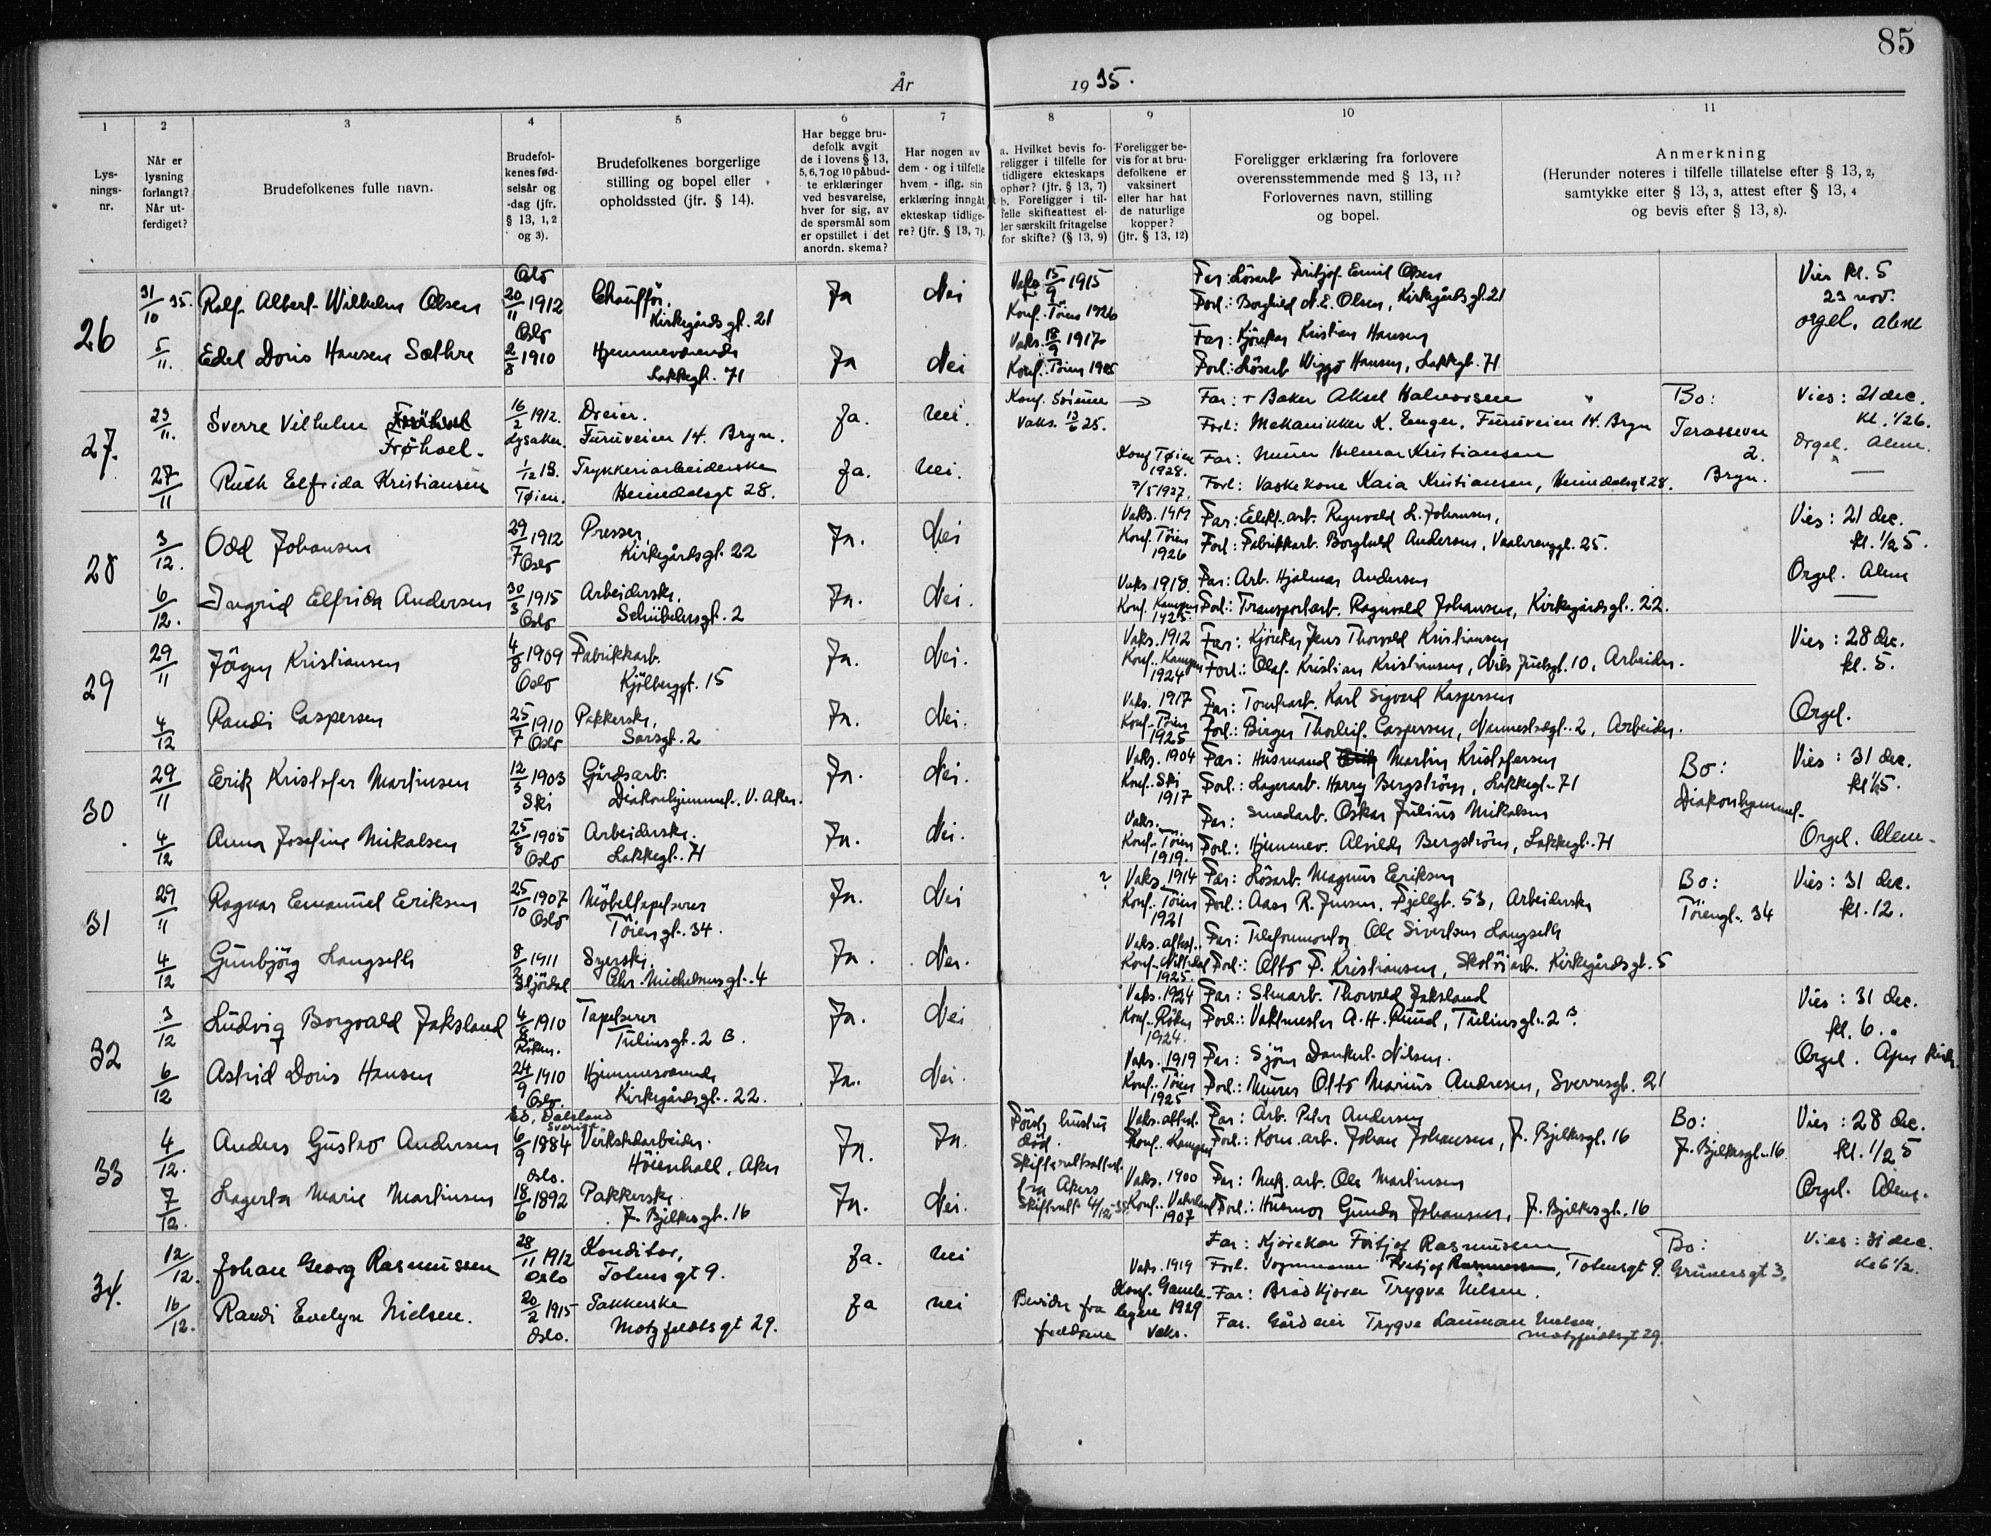 85
År 1935.
1 2 3 4 5 6 7 8 9 10 11
Lys-
nings-
nr.
Når er
lysning
forlangt?
Når ut-
ferdiget?
Brudefolkenes fulle navn.
Brudefol-
kenes fød-
selsår og
-dag (jfr.
§ 13, 1, 2
og 3).
Brudefolkenes borgerlige
stilling og bopel eller
opholdssted (jfr. § 14).
Har begge bru-
defolk avgit
de i lovens § 13,
5, 6, 7 og 10 påbud-
te erklæringer
ved besvarelse,
hver for sig, av
de spørsmål som
er opstillet i det
anordn. skema?
Har nogen av
dem - og i tilfelle
hvem - iflg. sin
erklæring inngåt
ekteskap tidlige-
re? (jfr. § 13, 7).
a. Hvilket bevis fo-
religger i tilfelle for
tidligere ekteskaps
ophør? (jfr. § 13, 7)
b. Foreligger i til-
felle skifteattest el-
ler særskilt fritagelse
for skifte? (§ 13, 9)
Foreligger be-
vis for at bru-
defolkene er
vaksinert
eller har hat
de naturlige
kopper?
(jfr. § 13, 12)
Foreligger erklæring fra forlovere
overensstemmende med § 13, 11?
Forlovernes navn, stilling
og bopel.
Anmerkning
(Herunder noteres i tilfelle tillatelse efter § 13, 2,
samtykke efter § 13, 3, attest efter § 13, 4
og bevis efter § 13, 8).
26
31/10 35. Rolf Albert Wilhelm Olsen Oslo 20/11 1912 Chauffør. Kirkegårdsgt. 21 Ja Nei Vaks. 15/9 1915 Konf. Töien 1926 Far: Lösarb. Fritjof Emil Olsen
Forl.: Borghild N. E. Olsen, Kirkegårdsgt. 21
Vies kl. 5
23 nov.
orgel. alene
5/11. Edel Doris Hansen Sæthre Oslo 2/8 1910 Hjemmeværende Lakkegt. 71 Ja Nei Vaks. 18/9 1917 Konf. Töien 1925 Far: Kjörekar Kristian Hansen
Forl.: Lösarb. Viggo Hansen, Lakkegt. 71
27.
23/11. Sverre Vilhelm Frøhoel. 16/2 1912. Lysaker. Dreier. Furuveien 14. Bryn. Ja. nei. Vaks. 13/6 25. Far: + Baker Aksel Halvorsen
Forl: Mekaniker K. Enger, Furuveien 14. Bryn
Bo: Terassevn 2. Bryn.
Vies: 21 dec.
kl. 1/26.
Orgel. Alene.
27/11 Ruth Elfrida Kristiansen 1/12 13. Tøien. Trykkeriarbeiderske Heimdalsgt 28. Ja. nei. Konf Tøien 1928. 7/5 1927. Far: Murer Helmer Kristiansen
Forl: Vaskekone Kaia Kristiansen, Heimdalsgt 28.
28
3/12. Odd Johansen 29/7 1912 Oslo Presser, Kirkegårdsgt. 22 Ja. Nei Konf. Töien 1926 Far: Elekt. arb. Ragnvald L. Johansen,
Forl: Fabrikkarb. Borghild Andersen, Vaalerenggt. 25.
Vies: 21 dec.
kl. 1/2 5.
Orgel. Alene
6/12. Ingrid Elfrida Andersen 30/3 1915 Oslo Arbeiderske. Schübelersgt. 2 Ja. Nei. Vaks 1918. Konf. Kampen Far: Arb. Hjalmar Andersen
Forl: Transportarb. Ragnvald Johansen, Kirkegårdsgt. 22.
29
29/11 Jörgen Kristiansen 4/8 1909 Oslo Fabrikkarb. Kjölberggt. 15 Ja. Nei. Vaks. 1912 Konf. Kampen 1924 Far: Kjörekar Jens Thorvald Kristiansen
Forl: Olaf Kristian Kristiansen, Nils Juelsgt. 10, Arbeider.
Vies: 28 dec.
kl. 5.
Orgel.
4/12 Randi Caspersen 25/7 1910 Oslo Pakkerske, Sarsgt. 2 Ja. Nei. Vaks. 1917 Konf. Töien 1925 Far: Tomtearb. Karl Sigvard Kaspersen
Forl: Birger Thorleif Caspersen, Nannestadgt. 2, Arbeider.
30
29/11 Erik Kristofer Martinsen 12/3 1903 Ski Gårdsarb. Diakonhjemmet, V. Aker. Ja. Nei. Vaks. 1904 Konf. Ski 1917 Far: Husmand Martin Kristofersen
Forl: Lagerarb. Harry Bergström, Lakkegt. 71
Bo: Diakonhjemmet
Vies: 31 dec.
kl 1/2 5.
Orgel. Alene.
4/12 Anna Josefine Mikalsen 25/8 1905 Oslo Arbeiderske. Lakkegt. 71 Ja. Nei. Vaks. Konf. Töien 1919. Far: Smedarb. Oskar Julius Mikalsen
Forl.: Hjemmev. Alvilde Bergström, Lakkegt. 71
31
29/11 Ragnar Emanuel Eriksen 25/10 1907 Oslo Möbeltapetserer Töiengt. 34. Ja. Nei ? Vaks. 1914 Konf. Töien 1921 Far: Lösarb. Magnus Eriksen
Forl: Aase R. Jensen, Fjellgt. 53, Arbeiderske
Bo: Töiengt. 34
Vies: 31 dec.
kl. 12.
4/12 Gunbjörg Langseth 8/2 1911 Syerske, Chr. Michelsensgt. 4 Ja. Nei. Vaks. attest. Konf. Nittedal 1925. Far: Telefonmontör Ole Sivertsen Langseth
Forl: Otto F. Kristiansen, Skotöiarb. Kirkegårdsgt. 5
32
3/12 Ludvig Borgvald Jaksland 4/8 1910 Röken. Tapetserer Tuliusgt. 2 B. Ja. Nei Vaks. 1924 Konf. Röken 1924. Far: Stenarb. Thorvald Jaksland
Forl: Vaktmester A. H. Ruud, Tuliusgt. 2 B.
Vies: 31 dec.
kl. 6.
Orgel.
6/12 Astrid Doris Hansen 24/9 1910 Oslo. Hjemmeværende Kirkegårdsgt. 22. Ja. Nei. Vaks. 1919 Konf. Töien 1925. Far: Sjöm Dankert Nilsen.
Forl: Murer Otto Marius Andresen, Sverresgt. 21
33
4/12. Anders Gustav Andersen Ed, Dalsland Sverige 6/9 1884 Verkstedarbeider. Höienhall, Aker Ja. Ja. Første hustru död. Skifterettsattest fra Akers Skifterett 4/12-35. Vaks. attest. Konf. Kampen Far: Arb. Peter Andersen
Forl: Kom. arb. Johan Johansen, J. Bjelkesgt. 16
Bo: J. Bjelkesgt. 16
Vies: 28 dec.
kl. 1/2 5
Orgel. Alene.
7/12. Lagerta Marie Martinsen Oslo. 18/6 1892 Pakkerske. J. Bjelkesgt. 16 Ja. Nei. Vaks. 1900 Konf. 1907 Far: Mek. arb. Ole Martinsen
Forl.: Husmor Gunda Johansen, J. Bjelkesgt. 16
34.
12/12. Johan Georg Rasmussen 28/11 1912 Oslo Konditor, Totensgt 9. Ja. nei Vaks. 1919 Far: Kjörekar Fritjof Rasmussen
Forl. Vognmann Fritjof Rasmussen, Totensgt 9.
Bo: Grünersgt 3.
Vies: 31 dec.
Kl 6 1/2.
16/12. Randi Evelyn Nielsen. 20/2 1915 Oslo. Pakkerske Motzfeldtsgt 29. Ja nei fra foreldrene Konf. Gamle- 1929 Vaks. Far: Brødkjører Trygve Nielsen.
Far. Gårdeier Trygve Nielsen, Motzfeldtsgt 29.